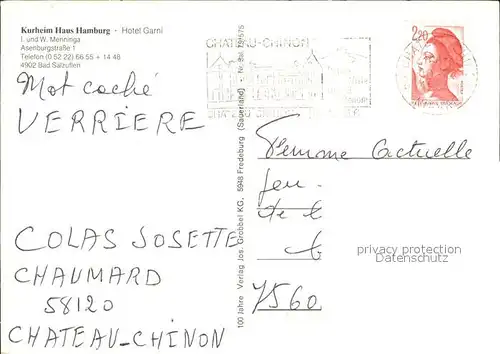 Kurheim Haus Hamburg · Hotel Garni
I. und W. Menninga
Asenburgstraße 1
Telefon (0 52 22) 66 55 + 14 48
4902 Bad Salzuflen
Mot caché
VERRIERE
COLAS JOSETTE
CHAUMARD
58120
CHATEAU-CHINON
100 Jahre Verlag Jos. Grobbel KG, 5948 Fredeburg (Sauerland)
CHATEAU-CHINON
2,20
Femme Actuelle
Jeu
de l
b
7560
privacy protection
Datenschutz